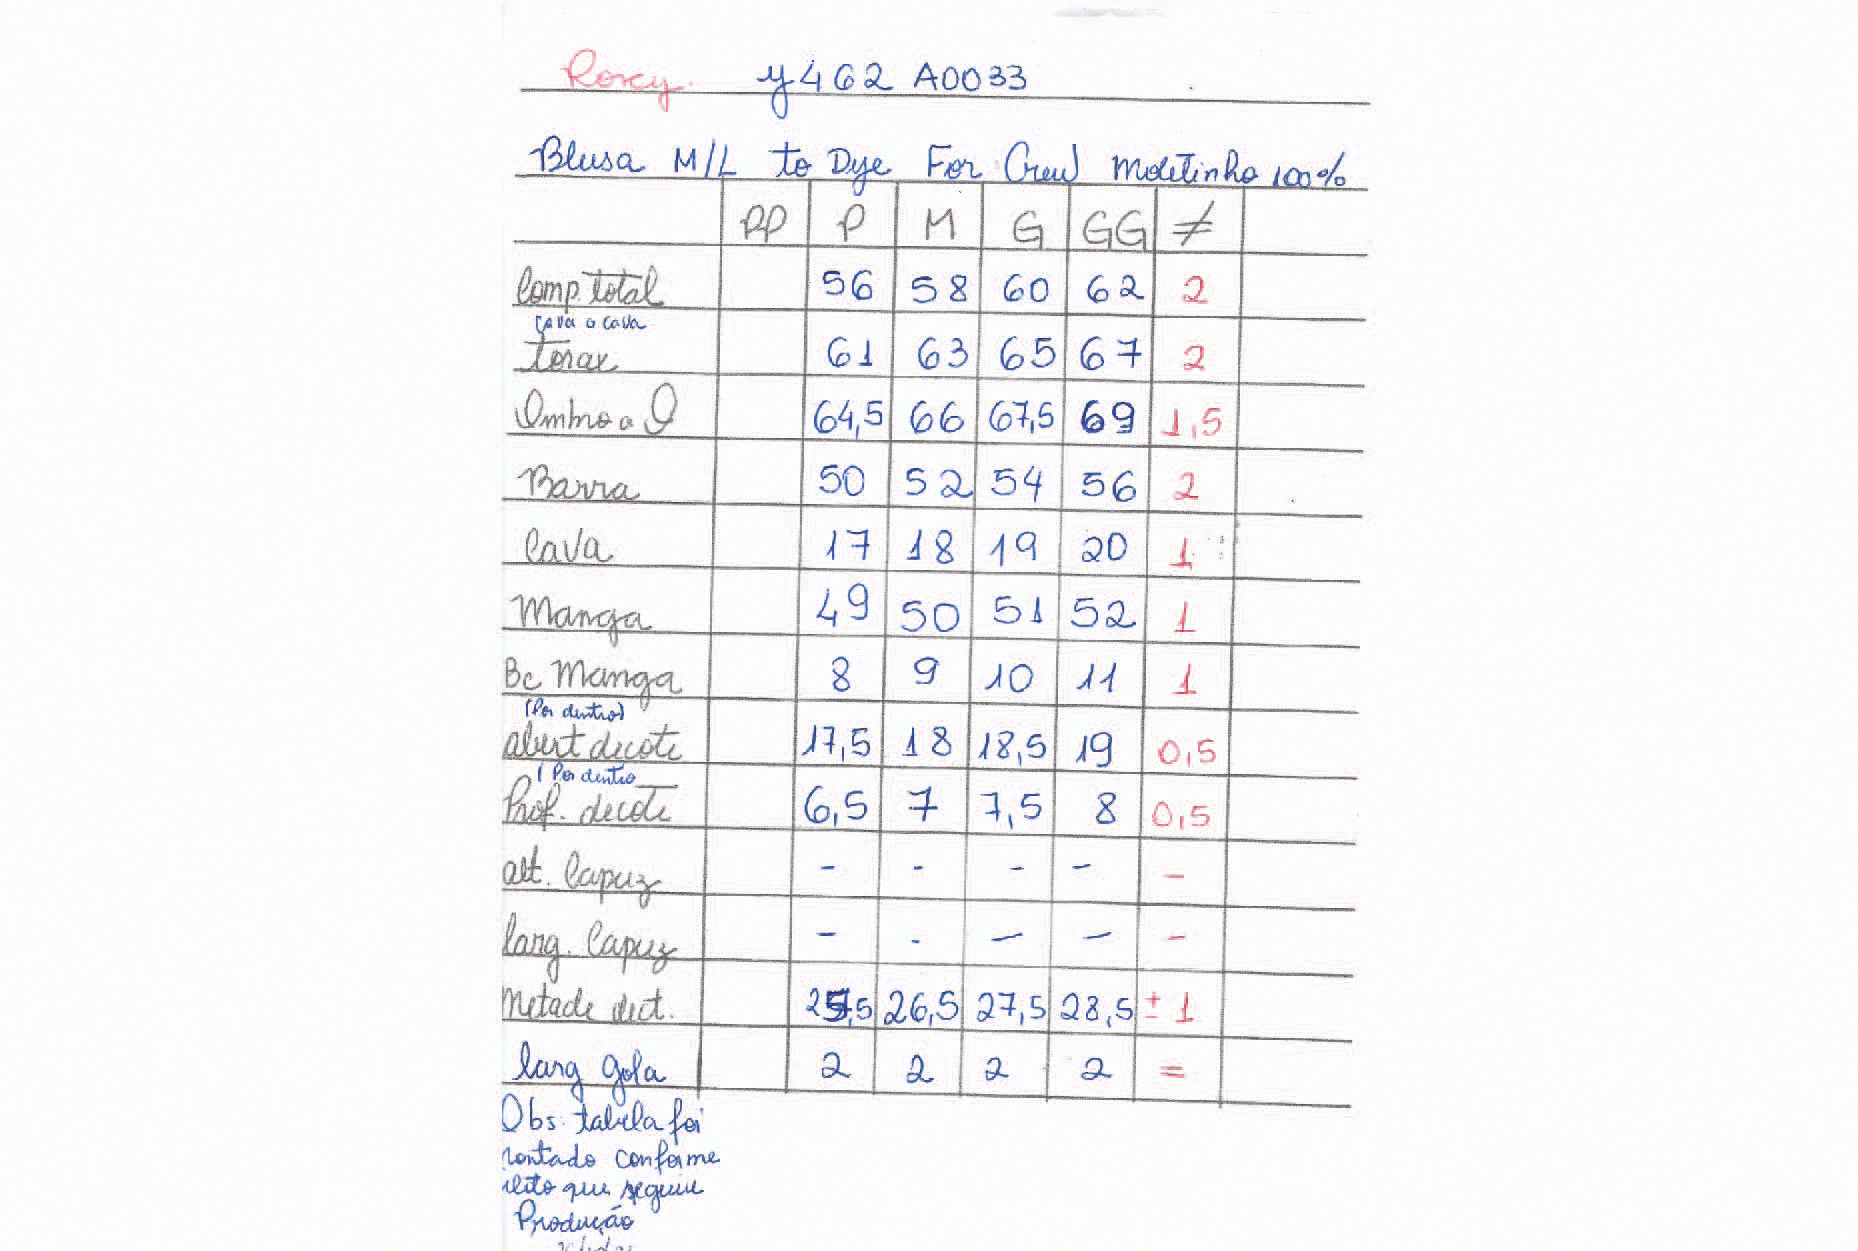 Roxy. y462 A0033
Blusa M/L to Dye For Crew Moletinho 100%
PP P M G GG ≠
Comp. total 56 58 60 62 2
cava a cava
torax 61 63 65 67 2
Ombro a O 64,5 66 67,5 69 1,5
Barra 50 52 54 56 2
Cava 17 18 19 20 1
Manga 49 50 51 52 1
Bc Manga 8 9 10 11 1
(Por dentro)
abert decote 17,5 18 18,5 19 0,5
(Por dentro
Prof. decote 6,5 7 7,5 8 0,5
alt. Capuz - - - - -
larg. Capuz - - - - -
Metade dect. 25,5 26,5 27,5 28,5 ± 1
larg gola 2 2 2 2 =
Obs. tabela foi
montado conforme
que seguiu
Produção